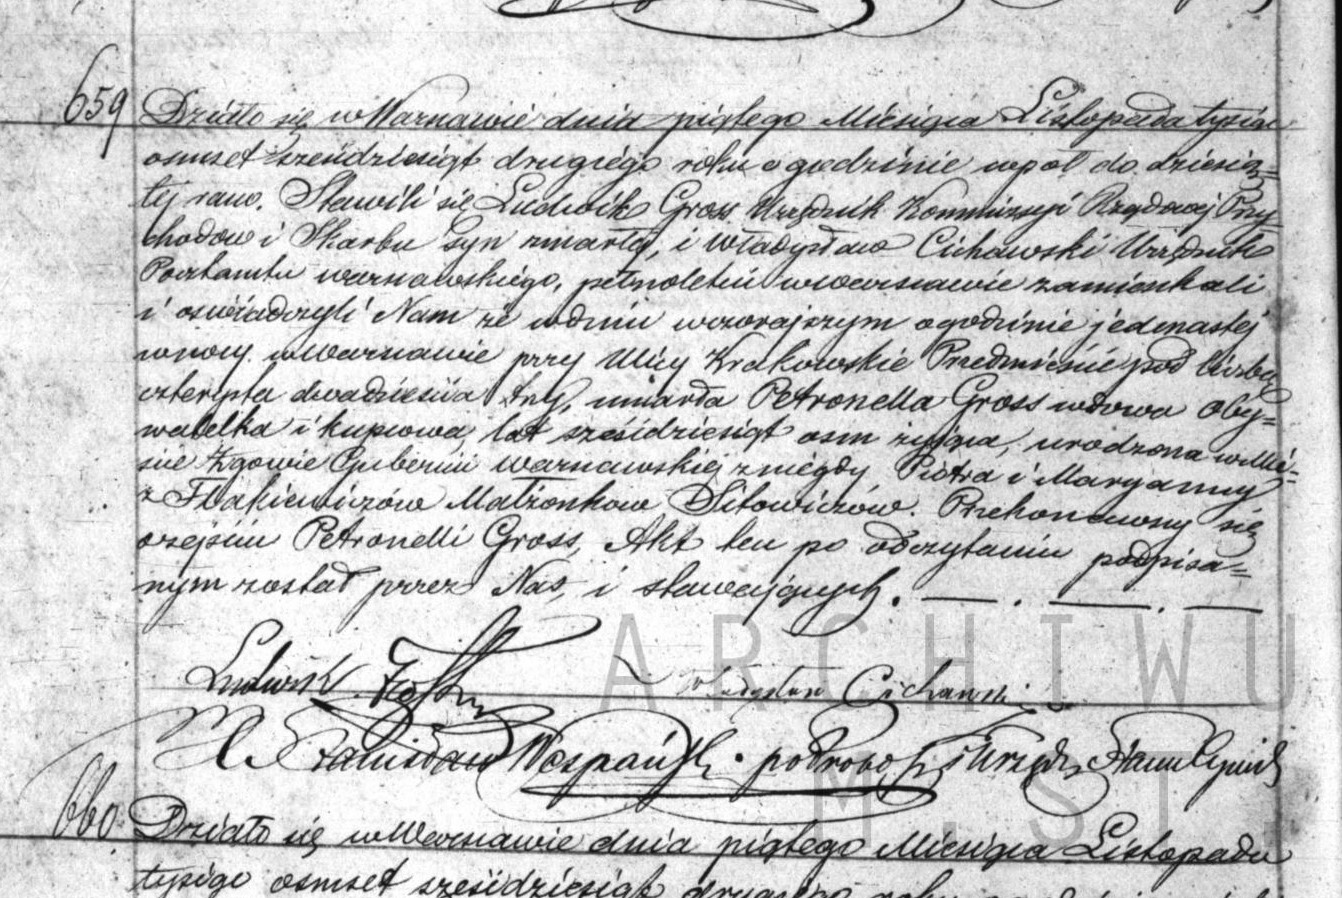 659 Działo się w Warszawie dnia piątego Miesiąca Listopada tysiąc
osmset sześdziesiąt drugiego roku o godzinie wpół do dziesią=
tej rano. Stawili się Ludwik Gross Urzędnik Kommissyi Rządowej Przy=
chodów i Skarbu syn zmarłej, i Władysław Cichawski Urzędnik
Pocztamtu warszawskiego, pełnoletni w Warszawie zamieszkali
i oświadczyli Nam że w dniu wczorajszym o godzinie jedenastej
w nocy w Warszawie przy Ulicy Krakowskie Przedmieście pod liczbą
czterysta dwadzieścia trzy, umarła Petronella Gross wdowa Oby=
watelka i kupcowa, lat sześdziesiąt osm żyjąca, urodzona w Mie=
ście Zgowie Gubernii warszawskiej z niegdy Piotra i Maryanny
z Małżonków Sitowiczów. Przekonawszy się
o zejściu Petronelli Gross, Akt ten po odczytaniu podpisa=
nym został przez Nas, i stawających.
Ludwik Gross Władysław Cichawski
X. Stanisław
660. Działo się w Warszawie dnia piątego Miesiąca Listopada
tysiąc osmset sześdziesiąt drugiego roku
ARCHIWU
M. S T.